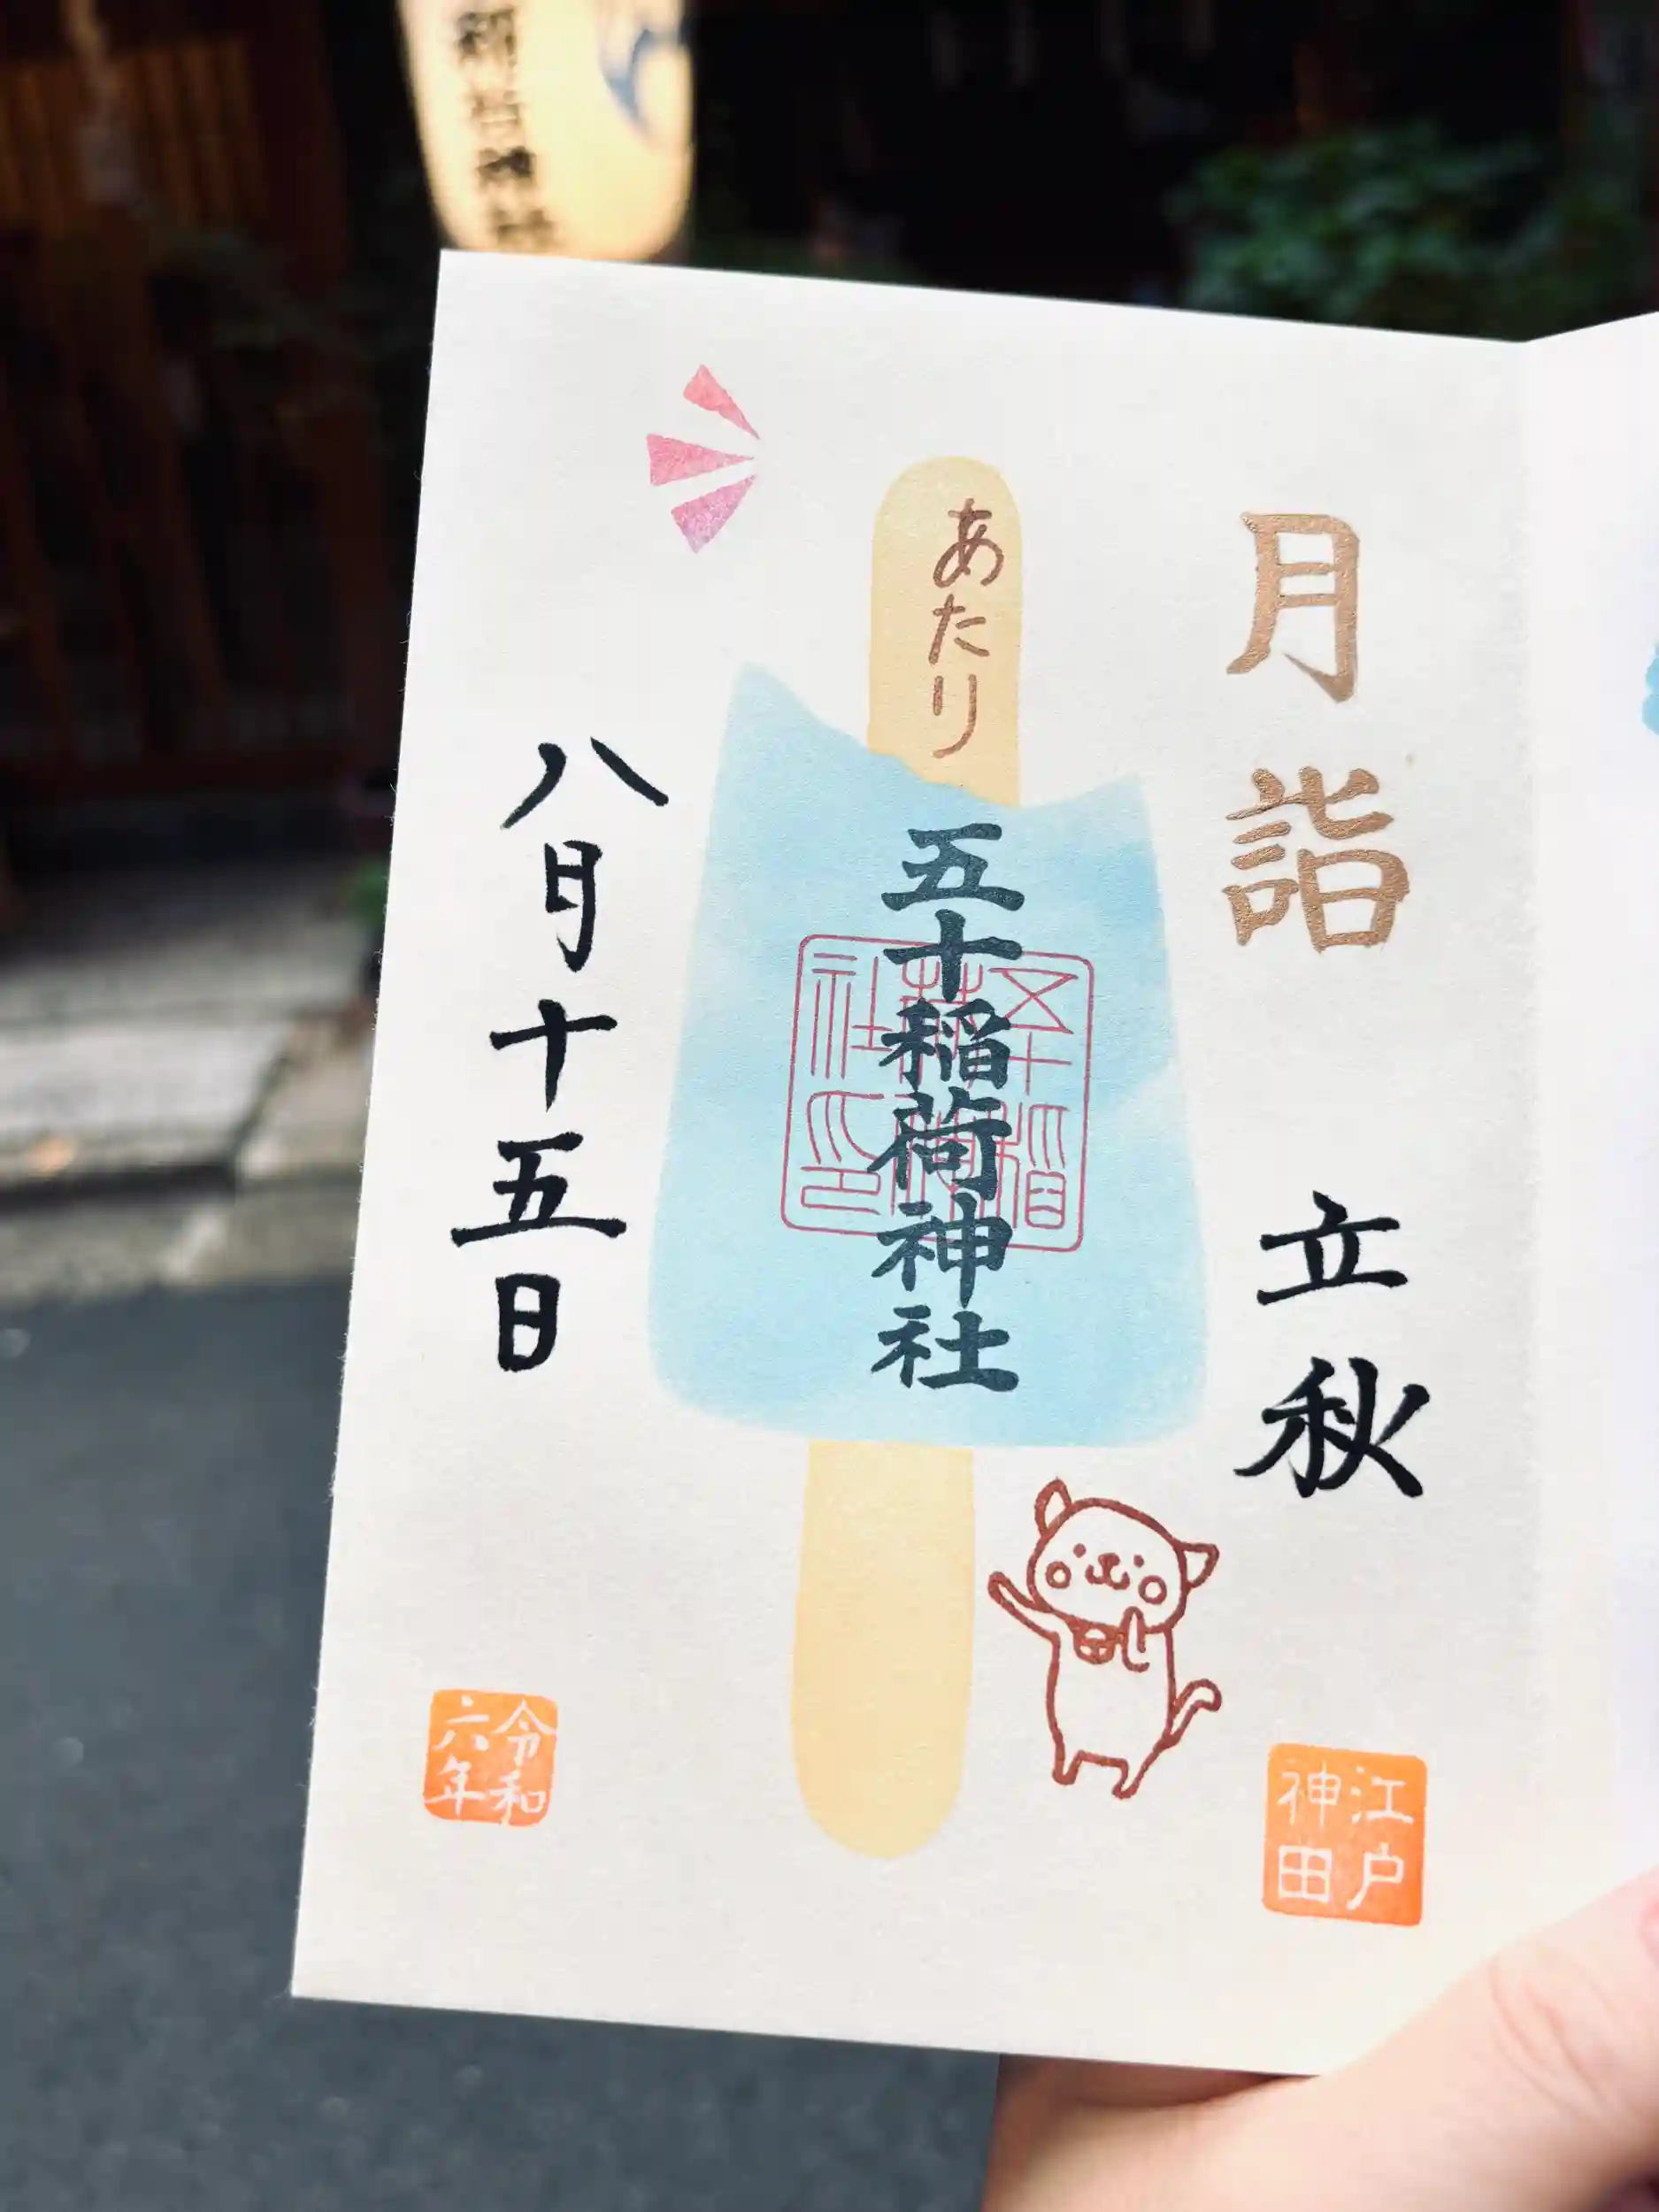 月詣
立秋
江戸
神田
あたり
五十稲荷神社
五十稲
荷神
社印
八月十五日
令和
六年